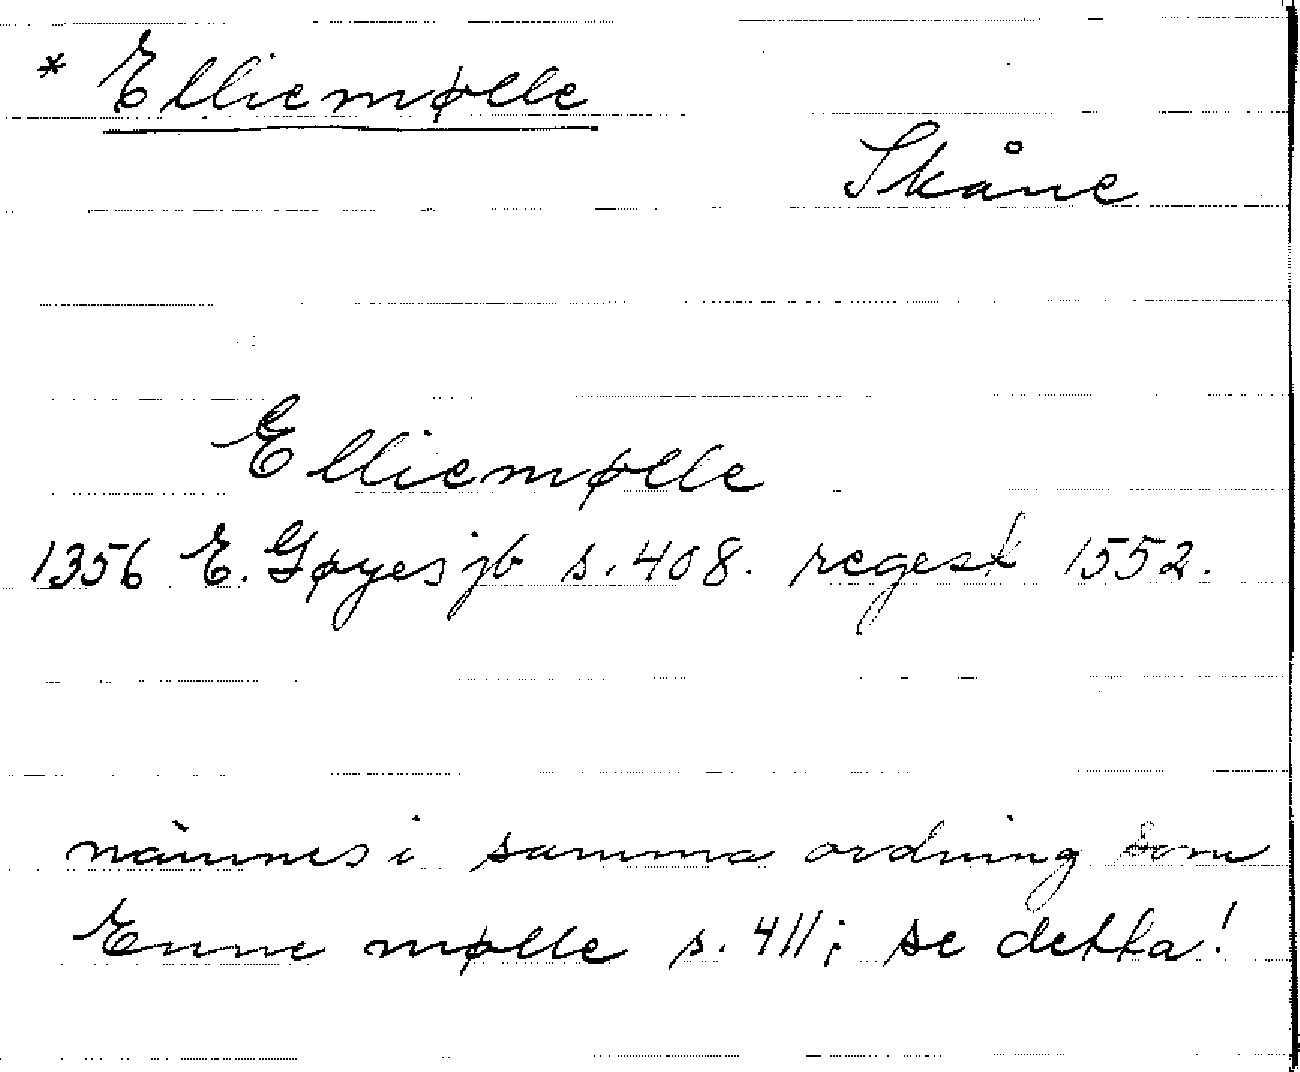 * Elliemølle
Skåne
Elliemølle
1356 E. Gøyes jb s. 408. regest 1552.
nämnes i samma ordning som
Enne mølle s. 411; se detta!